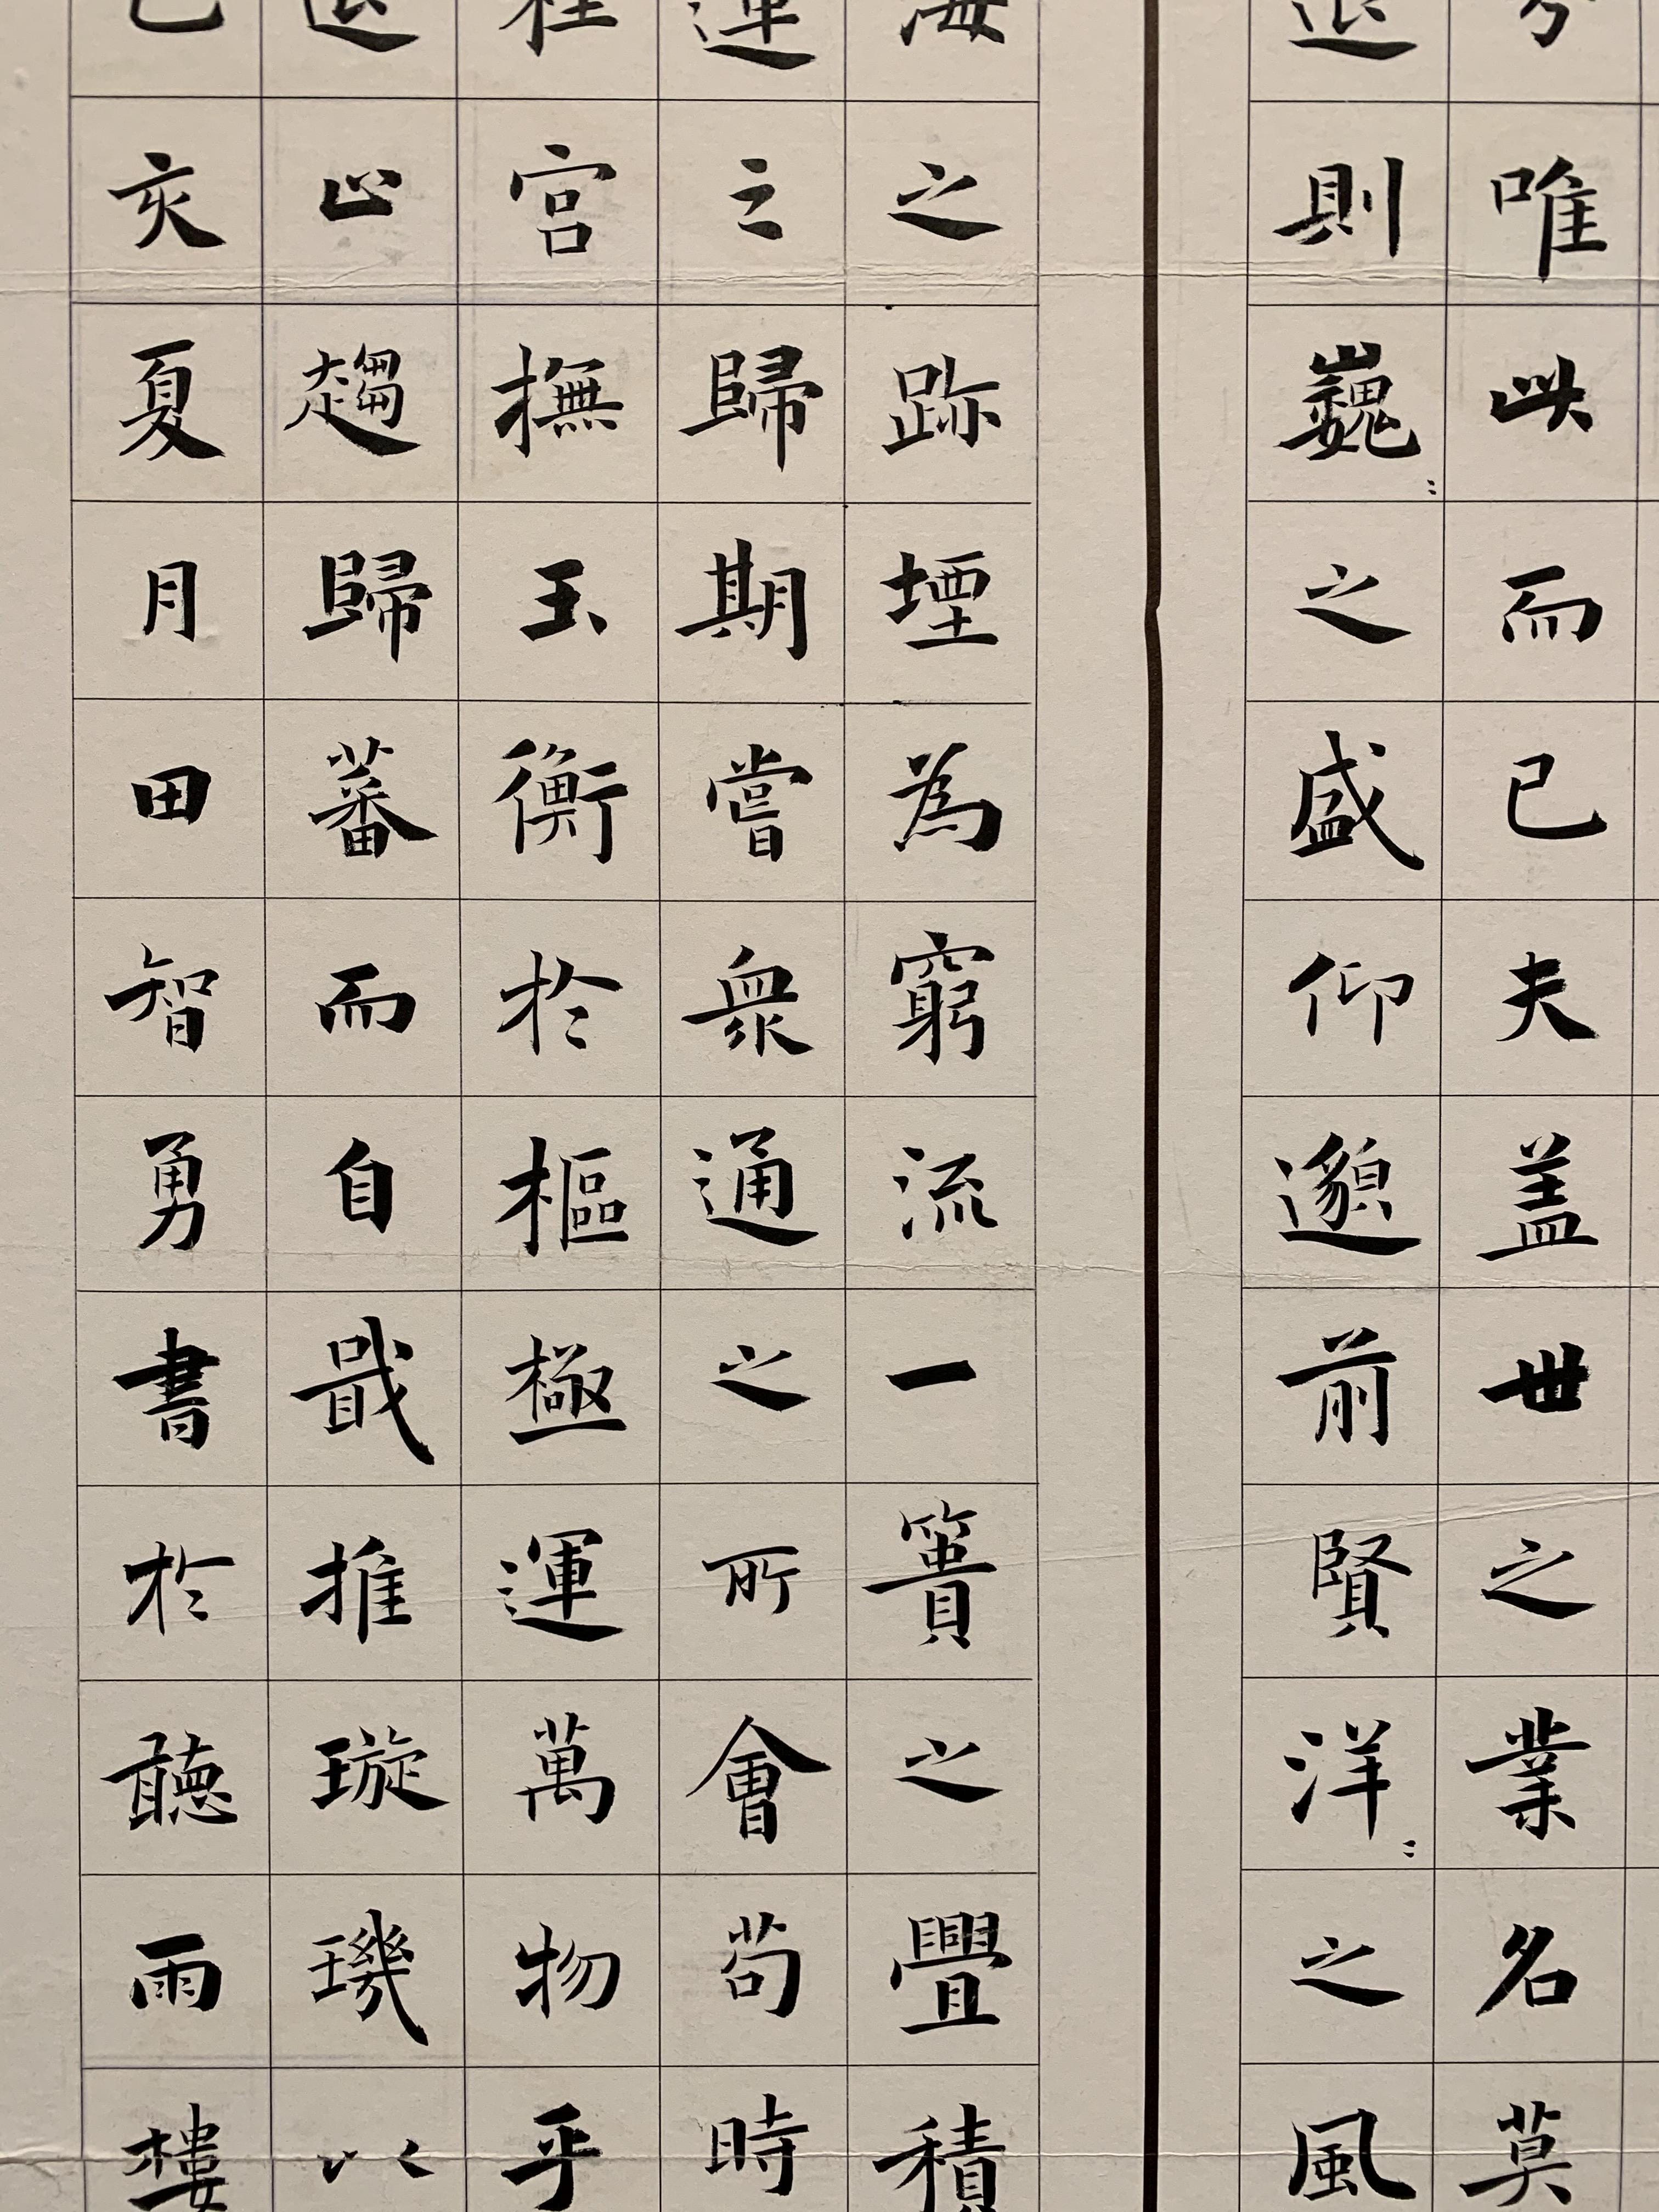 唯此而已夫盖世之業名莫
則巍〻之盛仰邈前賢洋〻之風
海之跡堙為窮流一簣之舋積
運之歸期嘗衆通之所會苟時
宮撫玉衡於樞極運萬物乎
止趨歸蕃而自戢推璇璣以
己亥夏月田智勇書於聽雨樓